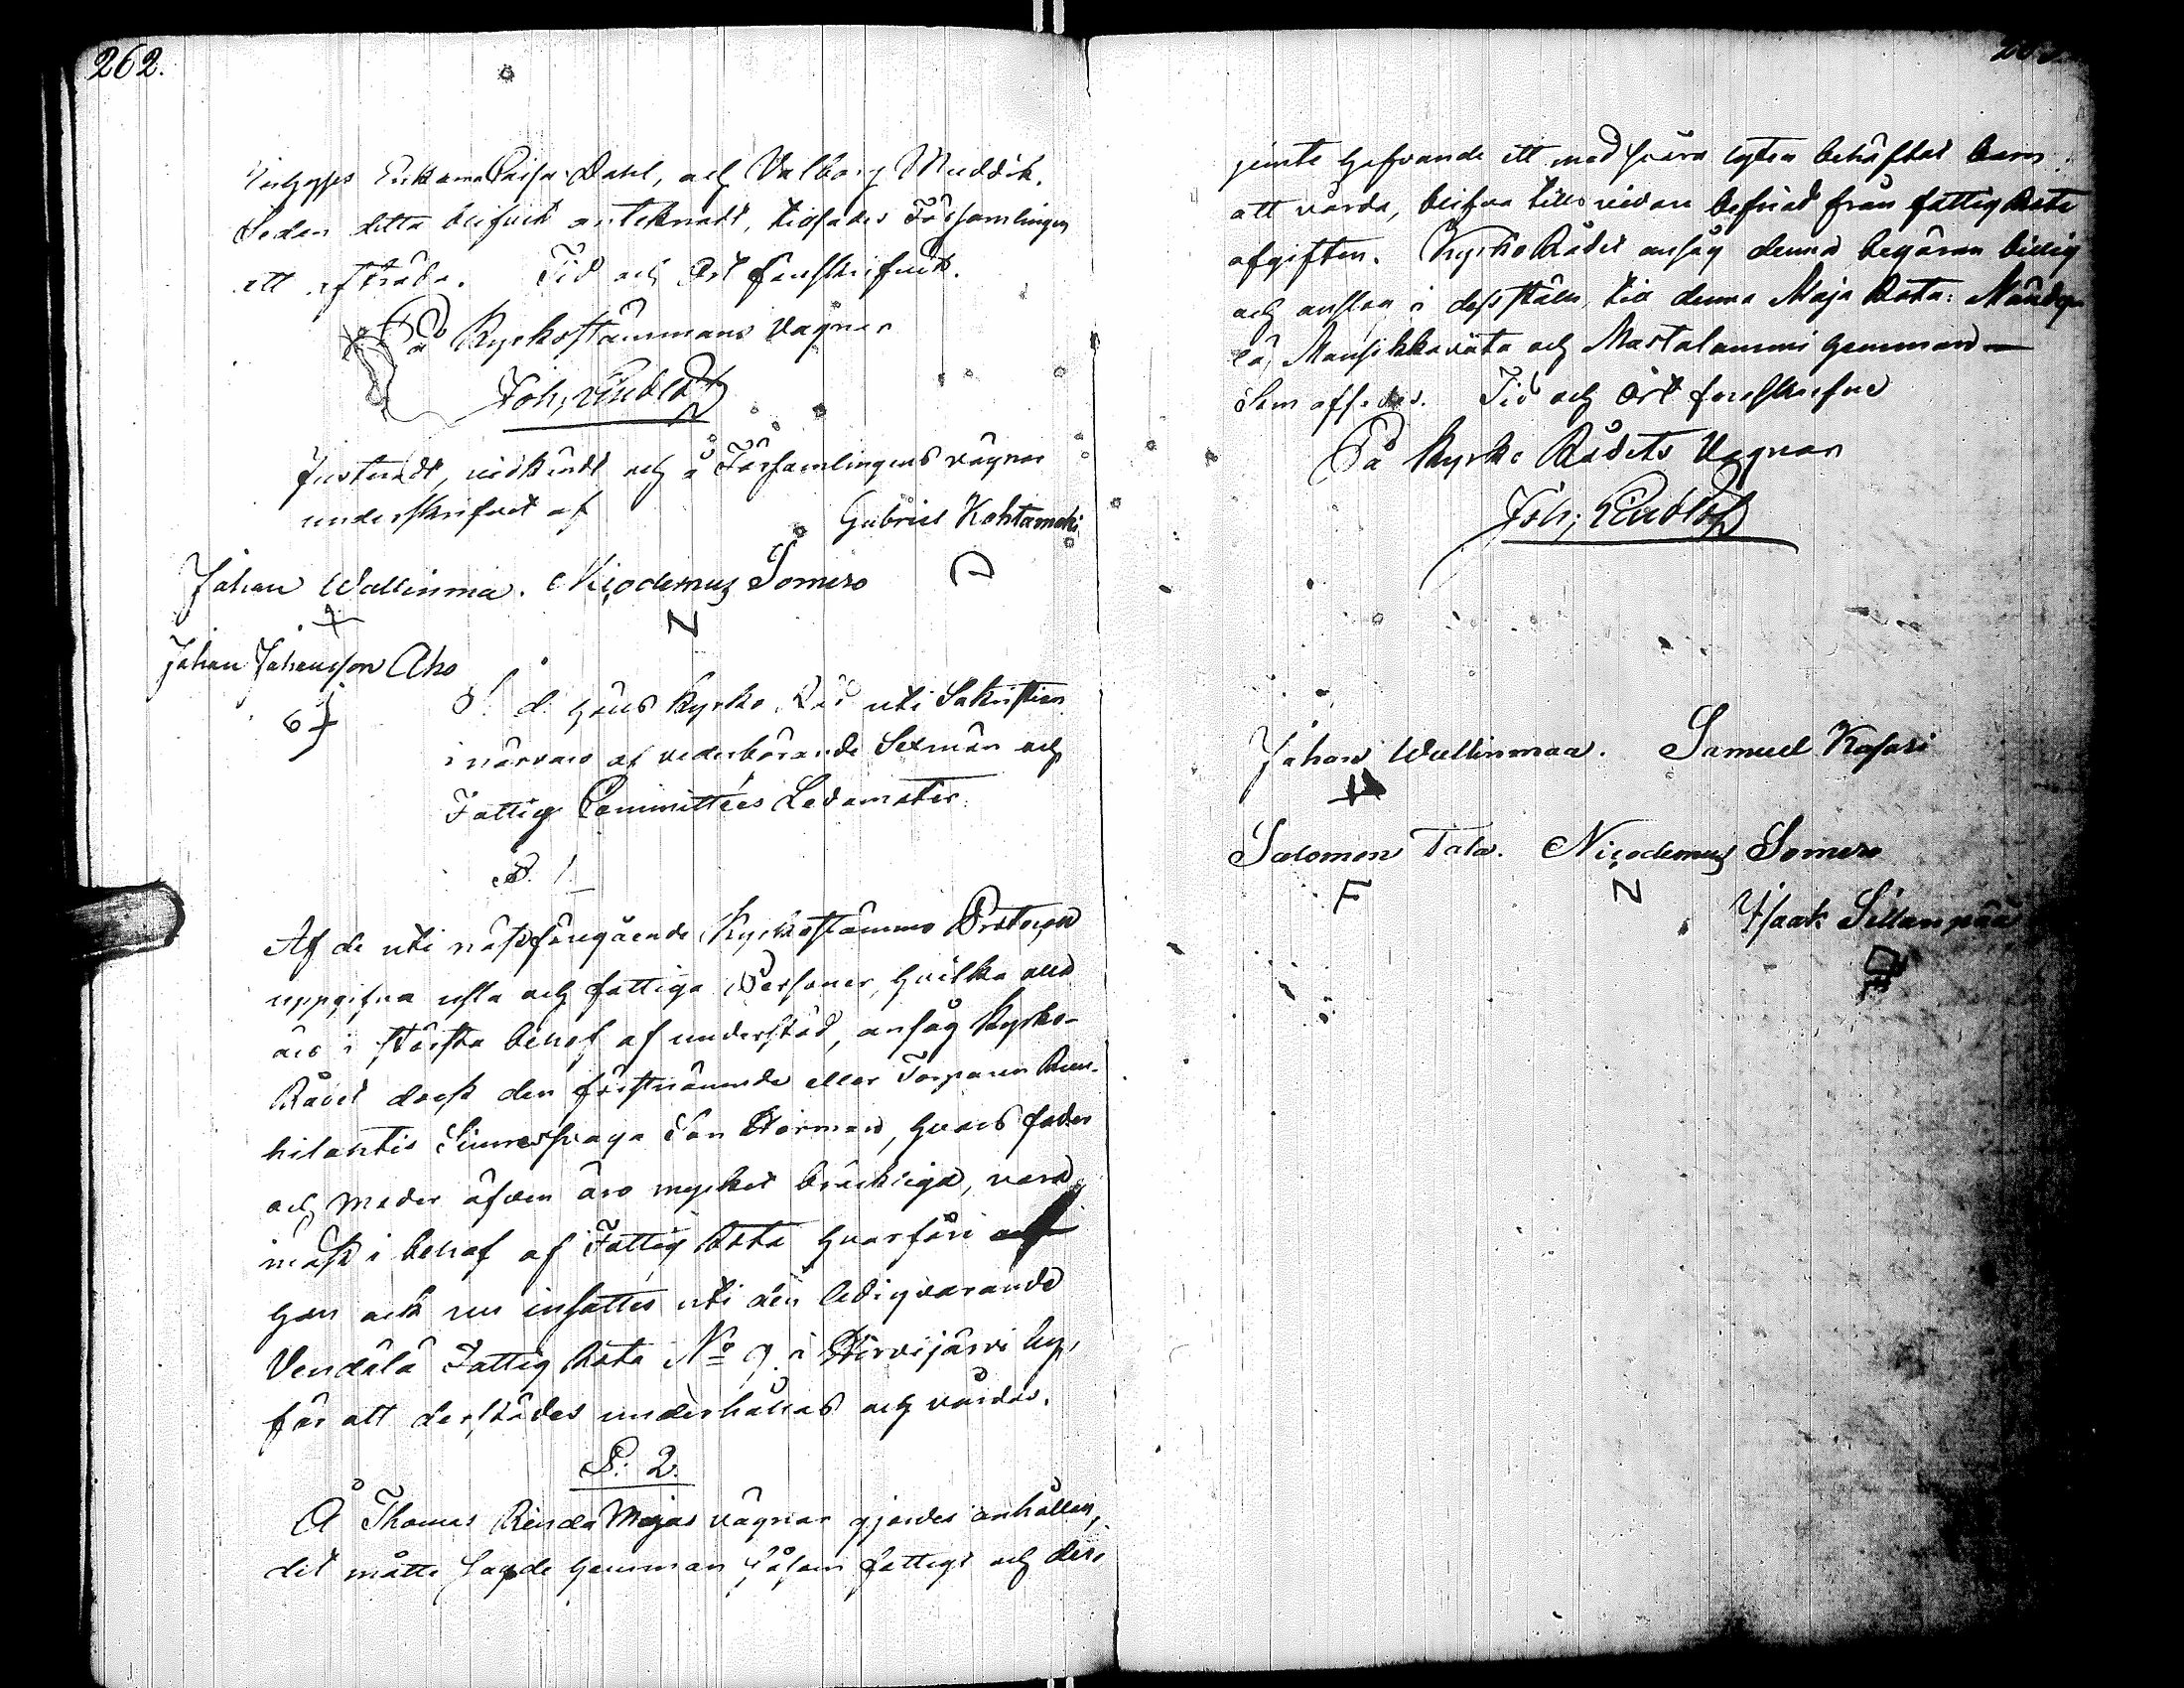 262.
Enkorna Caisa Dahl, och Valborg Muddik.
Sedan detta blifvit antecknadt, tillsades Församlingen
att afträda. Tid och Ort förskrifvit.
På Kyrkostämmans vägnar
Joh; Lindlöf
Justeradt, vidkändt och å Församlingens vägnar
underskrifvet af
Gabriel Kohtamäki
Johan Wallinmaa. Nicodemus Somero
N
Johan Johansson Aho
S. d. hölls Kyrko Råd uti Sakristian
i närvaro af vederbörande Sexmän och
Fattig Committées Ledamöter.
§. 1.
Af de uti nästföregående Kyrkostämmo Protocoll
uppgifna usla och fattiga Personer, hvilka alla
äro i största behof af understöd, ansåg Kyrko-
Rådet dock den förstnämnde eller Torparen Ruu-
hilantis Sinnessvaga Son Herman, hvars fader
och moder äfven äro mycket bräckliga, vara
mäst i behof af Fattig Rota hvarföre
han ock nu insattes uti den ledigvarande
Vendälä Fattig Rota No 9 i Hirvijärvi by,
för att derstädes underhållas och vårdas.
§. 2.
Å Thomas Rinda Majas vägnar gjordes anhållan,
det måtte sagde hemman såsom fattigt och der-
jemte hafvande ett med svåra lyten behäftat barn
att vårda, blifva tills vidare befriad från fattig Rote
afgiften. Kyrko Rådet ansåg denna begäran billig
och anslog i dess ställe, till denna Maja Rota:
lä, Mansikkaviita och Mastalammi hemman
Som afsades. Tid och Ort förskrifne
På Kyrko Rådets Vägnar
Joh; Lindlöf
Johan Wallinmaa. Samuel Kasari
Salomon Tala. Nicodemus Somero
F N
Isaak Sillanpää